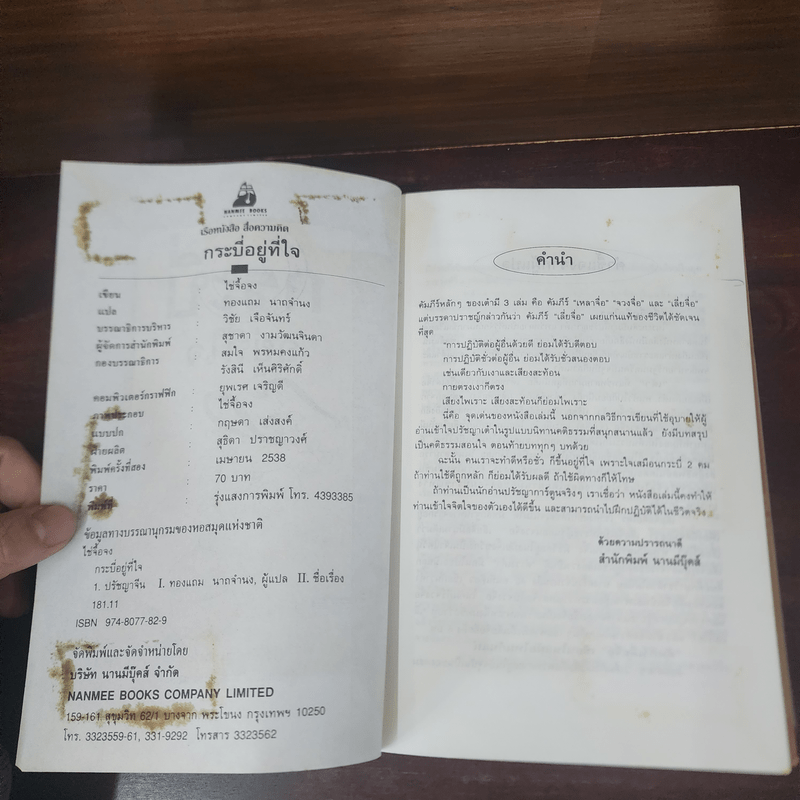 NANMEE BOOKS
เรือหนังสือ สื่อความคิด
กระบี่อยู่ที่ใจ
เขียน : ไช่จื้อจง
แปล : ทองแถม นาถจำนง
บรรณาธิการบริหาร : วิชัย เจือจันทร์
ผู้จัดการสำนักพิมพ์ : สุชาดา งามวัฒนจินดา
กองบรรณาธิการ : สมใจ พรหมคงแก้ว
รังสินี เห็นศิริศักดิ์
คอมพิวเตอร์กราฟฟิก : ยุพเรศ เจริญดี
ภาพประกอบ : ไช่จื้อจง
แบบปก : กฤษดา เส่งสงค์
ฝ่ายผลิต : สุธิดา ปราชญาวงศ์
พิมพ์ครั้งที่สอง : เมษายน 2538
ราคา : 70 บาท
พิมพ์ที่ : รุ่งแสงการพิมพ์ โทร. 4393385
ข้อมูลทางบรรณานุกรมของหอสมุดแห่งชาติ
ไช่จื้อจง
กระบี่อยู่ที่ใจ
1. ปรัชญาจีน I. ทองแถม นาถจำนง, ผู้แปล II. ชื่อเรื่อง
181.11
ISBN 974-8077-82-9
จัดพิมพ์และจัดจำหน่ายโดย
บริษัท นานมีบุ๊คส์ จำกัด
NANMEE BOOKS COMPANY LIMITED
159-161 สุขุมวิท 62/1 บางจาก พระโขนง กรุงเทพฯ 10250
โทร. 3323559-61, 331-9292 โทรสาร 3323562
คำนำ
คัมภีร์หลักๆ ของเต๋ามี 3 เล่ม คือ คัมภีร์ "เหลาจื่อ" "จวงจื่อ" และ "เลี่ยจื่อ"
แต่บรรดาปราชญ์กล่าวกันว่า คัมภีร์ "เลี่ยจื่อ" เผยแก่นแท้ของชีวิตได้ชัดเจน
ที่สุด
"การปฏิบัติต่อผู้อื่นด้วยดี ย่อมได้รับดีตอบ
การปฏิบัติชั่วต่อผู้อื่น ย่อมได้รับชั่วสนองตอบ
เช่นเดียวกับเงาและเสียงสะท้อน
กายตรงเงาก็ตรง
เสียงไพเราะ เสียงสะท้อนก็ย่อมไพเราะ
นี่คือ จุดเด่นของหนังสือเล่มนี้ นอกจากกลวิธีการเขียนที่ใช้อุบายให้ผู้
อ่านเข้าใจปรัชญาเต๋าในรูปแบบนิทานคติธรรมที่สนุกสนานแล้ว ยังมีบทสรุป
เป็นคติธรรมสอนใจ ตอนท้ายบททุกๆ บทด้วย
ฉะนั้น คนเราจะทำดีหรือชั่ว ก็ขึ้นอยู่ที่ใจ เพราะใจเสมือนกระบี่ 2 คม
ถ้าท่านใช้ดีถูกหลัก ก็ย่อมได้รับผลดี ถ้าใช้ผิดทางก็ให้โทษ
ถ้าท่านเป็นนักอ่านปรัชญาการ์ตูนจริงๆ เราเชื่อว่า หนังสือเล่มนี้คงทำให้
ท่านเข้าใจจิตใจของตัวเองได้ดีขึ้น และสามารถนำไปฝึกปฏิบัติได้ในชีวิตจริง
ด้วยความปรารถนาดี
สำนักพิมพ์ นานมีบุ๊คส์